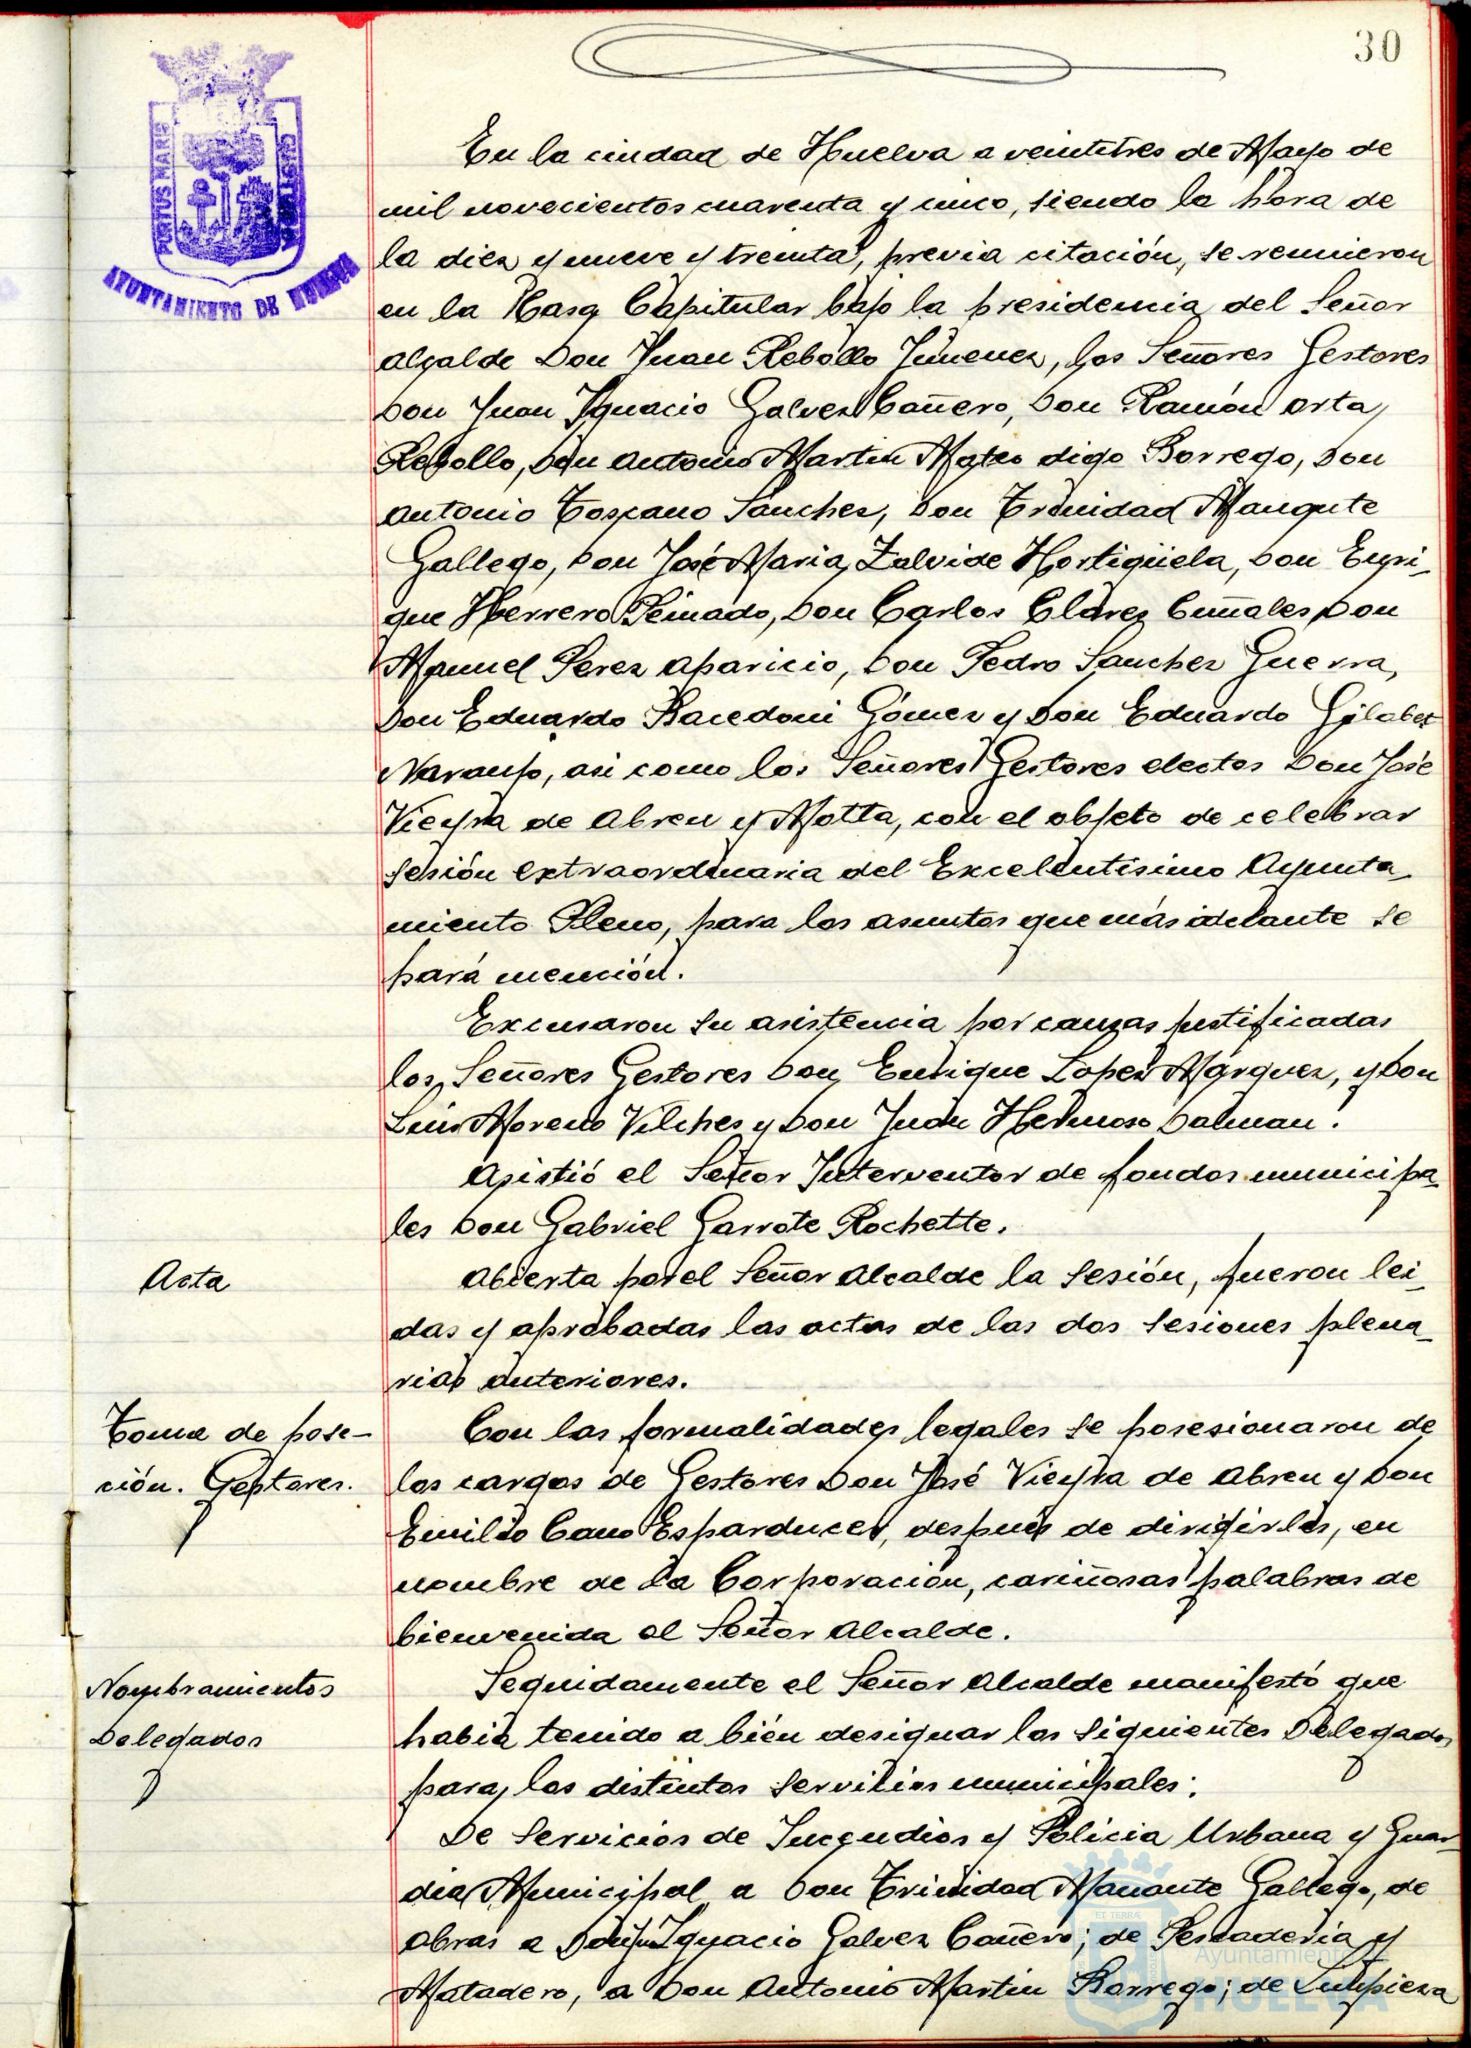 30
PORTUS MARIS
AYUNTAMIENTO DE HUELVA
En la ciudad de Huelva a veintitres de Mayo de
mil novecientos cuarenta y cinco, siendo la hora de
la diez y nueve y treinta, previa citación, se reunieron
en la Casa Capitular bajo la presidencia del Señor
Alcalde Don Juan Rebollo Jimenez, los Señores Gestores
Don Juan Ignacio Galvez Cañero, Don Ramón Orta
Rebollo, Don Antonio Martin Mateo digo Borrego, Don
Antonio Toscano Sanchez, Don Trinidad Manaute
Gallego, Don José Maria Zalvide Hortigüela, Don Enri-
que Herrero Peinado, Don Carlos Clarez Cumales, Don
Manuel Perez Aparicio, Don Pedro Sanchez Guerra,
Don Eduardo Bacedoni Gómez y Don Eduardo Gilabet
Naranjo, asi como los Señores Gestores electos Don José
Vieyra de Abreu y Motta, con el objeto de celebrar
sesión extraordinaria del Excelentisimo Ayunta-
miento Pleno, para los asuntos que más adelante se
hará mención.
Excusaron su asistencia por causas justificadas
los Señores Gestores Don Enrique Lopez Márquez, y Don
Luis Moreno Vilches y Don Juan Hermoso Dalman.
Asistió el Señor Interventor de fondos municipa-
les Don Gabriel Garrote Rochette.
Acta
Abierta por el Señor Alcalde la sesión, fueron lei-
das y aprobadas las actas de las dos sesiones plena-
rias anteriores.
Toma de pose-
ción. Gestores.
Con las formalidades legales se posesionaron de
los cargos de Gestores Don José Vieyra de Abreu y Don
Emilio Cano Esparducer, después de dirigirles, en
nombre de la Corporación, cariñosas palabras de
bienvenida el Señor Alcalde.
Nombramientos
Delegados
Seguidamente el Señor Alcalde manifestó que
habia tenido a bién designar los siguientes Delegados
para los distintos servicios municipales:
De Servicios de Incendios y Policia Urbana y Guar-
dia Municipal a Don Trinidad Manaute Gallego, de
Obras a Don Ignacio Galvez Cañero; de Pescaderia y
Matadero, a Don Antonio Martin Borrego; de Limpieza
Ayuntamiento de
HUELVA